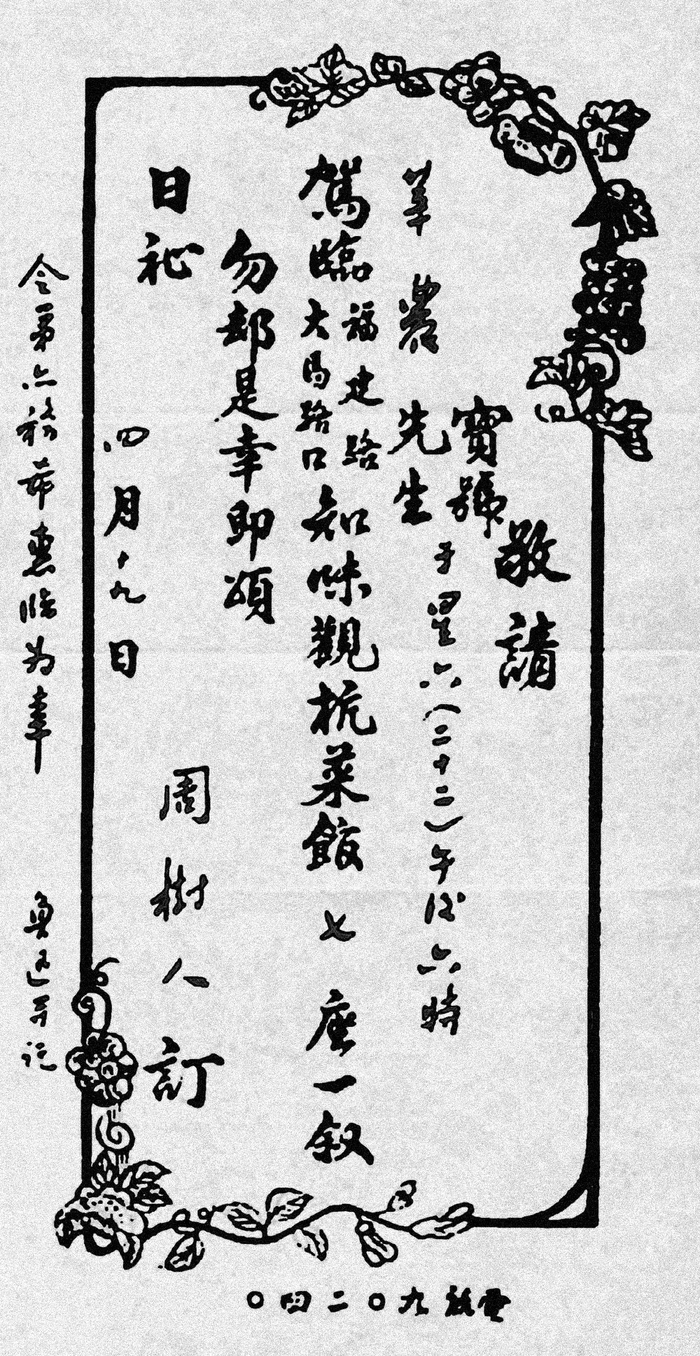 敬請
寶號
于星六（二十二）午後六時
莘農先生
駕臨福建路大馬路口知味觀杭菜館七座一叙
勿却是幸即頌
日祉
周樹人訂
四月十九日
令弟亦務希惠臨为幸 魯迅并託
電話九〇二四〇